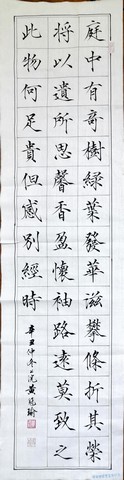 庭中有奇樹綠葉發華滋攀條折其榮
將以遺所思馨香盈懷袖路遠莫致之
此物何足貴但感別經時
辛丑仲冬